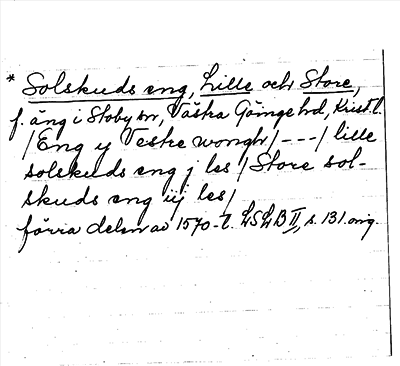 * Solskuds eng, Lille och Store,
f. äng i Stoby sn, Västra Göinge hd, Krist.l.
/Eng y Vestre wongh/ - - - / lille
solskuds eng j les / Store sol-
skuds eng iij les/
förra delen av 1570-t. LSLB II, s. 131. orig.